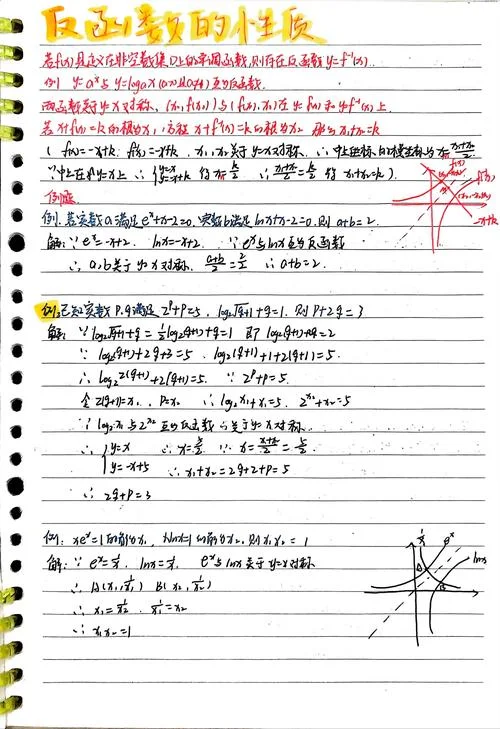 反函数的性质
若f(x)是定义在非空数集D上的单调函数,则存在反函数y=f⁻¹(x).
例 y=aˣ与y=logₐx(a>0且a≠1)互为反函数.
两函数关于y=x对称, (x₁,f(x₁))与(f(x₁),x₁)在y=f(x)和y=f⁻¹(x)上.
若x+f(x)=k的根为x₁,方程x+f⁻¹(x)=k的根为x₂ 那么x₁+x₂=k
( f(x)=-x+k. f⁻¹(x)=-x+k, x₁,x₂关于y=x对称. ∴中点坐标的横坐标为x=(x₁+x₂)/2
∵中点在y=x上 ∴{y=x y=-x+k 得x=k/2 ∴(x₁+x₂)/2=k/2 得x₁+x₂=k.)
f(x)
f⁻¹(x)
-x+k
例题
例. 若实数a满足eˣ+x-2=0.实数b满足lnx+x-2=0.则a+b=2.
解:∵eˣ=-x+2. lnx=-x+2. ∵eˣ与lnx互为反函数
∴a,b关于y=x对称. (a+b)/2=2/2 ∴a+b=2.
例.已知实数p.q满足2ᵖ+p=5, log₂√(q+1)+q=1. 则p+2q=3
解:∵log₂√(q+1)+q=½log₂(q+1)+q=1 即log₂(q+1)+2q=2
∵log₂(q+1)+2q+3=5. log₂(q+1)+1+2(q+1)=5.
∴log₂2(q+1)+2(q+1)=5. ∵2ᵖ+p=5.
令2(q+1)=x₁, p=x₂ ∴log₂x₁+x₁=5. 2^x₂+x₂=5
∵log₂x₁与2^x₂互为反函数∴关于y=x对称
∴{y=x ∴x=5/2 ∵x=(x₁+x₂)/2=5/2
y=-x+5 ∴x₁+x₂=2q+2+p=5
∴2q+p=3
例: xeˣ=1的解为x₁, xlnx=1的解为x₂.则x₁x₂=1
解:∵eˣ=1/x. lnx=1/x. eˣ与lnx关于y=x对称
∴A(x₁,1/x₁) B(x₂,1/x₂)
∴x₁=1/x₂. 1/x₁=x₂
∴x₁x₂=1
1/x
eˣ
lnx
A
B